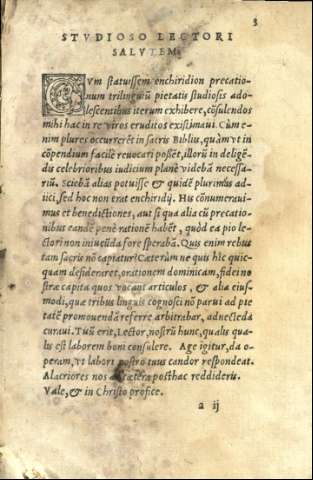 3
STVDIOSO LECTORI
SALVTEM.
CVm statuissem enchiridion precatio-
num trilinguiũ pietatis studiosis ado-
lescentibus iterum exhibere, cõsulendos
mihi hac in re viros eruditos existimaui. Cùm e-
nim plures occurrerẽt in sacris Bibliis, quàm vt in
cõpendium facilè reuocari possẽt, illorũ in deligẽ-
dis celebrioribus iudicium planè videbã necessa-
riũ. Sciebã alias potuisse & quidẽ plurimũs ad-
iici, sed hoc non erat enchiridij. His cõnumeraui-
mus et benedictiones, aut si qua alia cũ precatio-
nibus eandẽ penè rationẽ habẽt, quòd ea pio le-
ctori non iniucũda fore sperabã. Quis enim rebus
tam sacris nõ capiatur? Cæterùm ne quis hîc quic-
quam desideraret, orationem dominicam, fidei no
stræ capita quos vocant articulos, & alia eius-
modi, quæ tribus linguis cognosci nõ parui ad pie
tatẽ promouendã referre arbitrabar, adnectẽda
curaui. Tuũ erit, Lector, nostrũ hunc, qualis qua-
lis est laborem boni consulere. Age igitur, da o-
peram, vt labori nostro tuus candor respondeat.
Alacriores nos ad cætera posthac reddideris.
Vale, & in Christo profice.
a ij